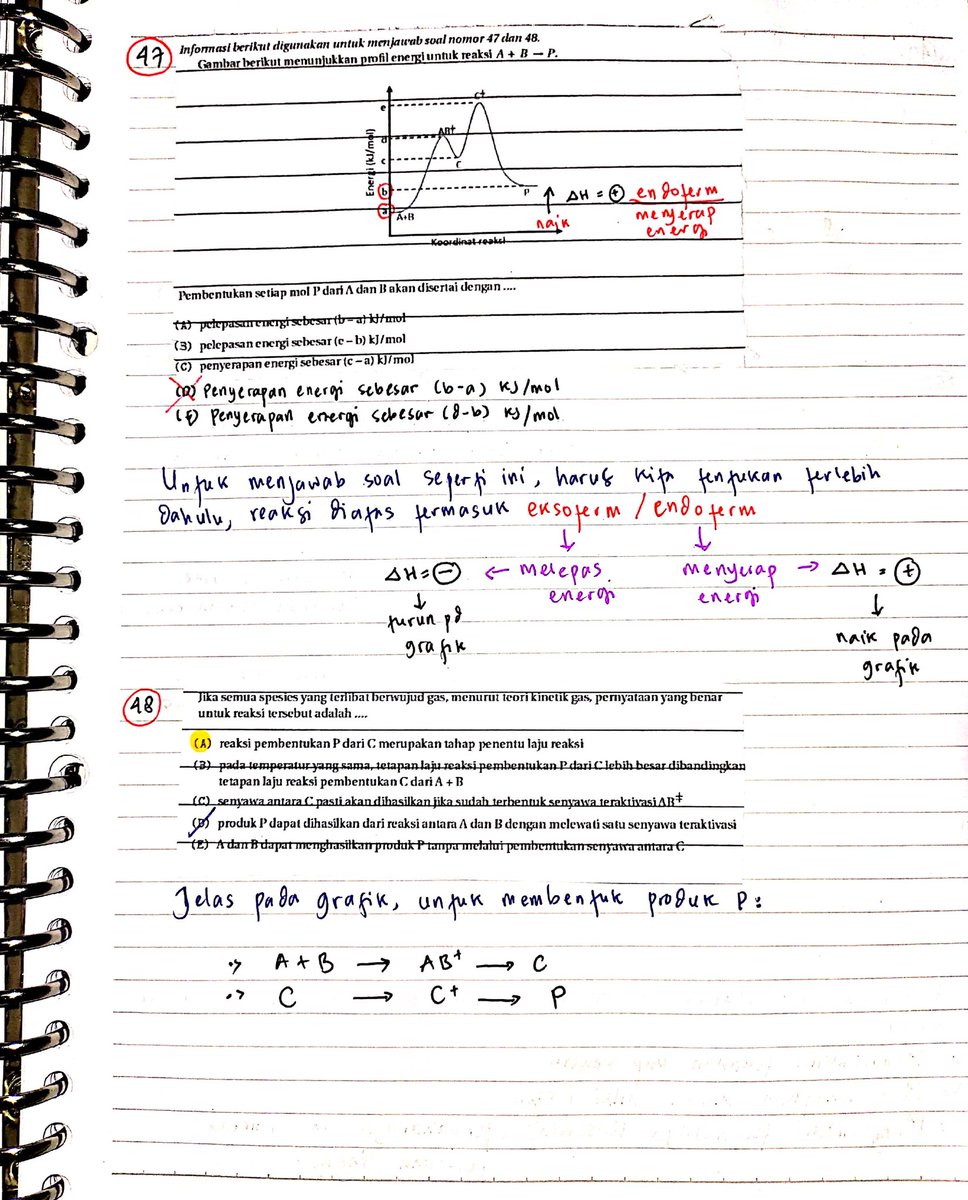 47
Informasi berikut digunakan untuk menjawab soal nomor 47 dan 48.
Gambar berikut menunjukkan profil energi untuk reaksi A + B → P.
Energi (kJ/mol)
e
d
c
b
a
C‡
AB‡
C
P
A+B
Koordinat reaksi
naik
ΔH = + endoterm
menyerap
energi
Pembentukan setiap mol P dari A dan B akan disertai dengan ....
(A) pelepasan energi sebesar (b – a) kJ/mol
(B) pelepasan energi sebesar (e – b) kJ/mol
(C) penyerapan energi sebesar (c – a) kJ/mol
(D) Penyerapan energi sebesar (b-a) KJ/mol
(E) Penyerapan energi sebesar (d-b) KJ/mol
Untuk menjawab soal seperti ini, harus kita tentukan terlebih
dahulu, reaksi diatas termasuk eksoterm / endoterm
ΔH = - ← melepas energi
menyerap energi → ΔH = +
turun pd
grafik
naik pada
grafik
48
Jika semua spesies yang terlibat berwujud gas, menurut teori kinetik gas, pernyataan yang benar
untuk reaksi tersebut adalah ....
(A) reaksi pembentukan P dari C merupakan tahap penentu laju reaksi
(B) pada temperatur yang sama, tetapan laju reaksi pembentukan P dari C lebih besar dibandingkan
tetapan laju reaksi pembentukan C dari A + B
(C) senyawa antara C pasti akan dihasilkan jika sudah terbentuk senyawa teraktivasi AB‡
(D) produk P dapat dihasilkan dari reaksi antara A dan B dengan melewati satu senyawa teraktivasi
(E) A dan B dapat menghasilkan produk P tanpa melalui pembentukan senyawa antara C
Jelas pada grafik, untuk membentuk produk P:
A + B → AB‡ → C
C → C‡ → P